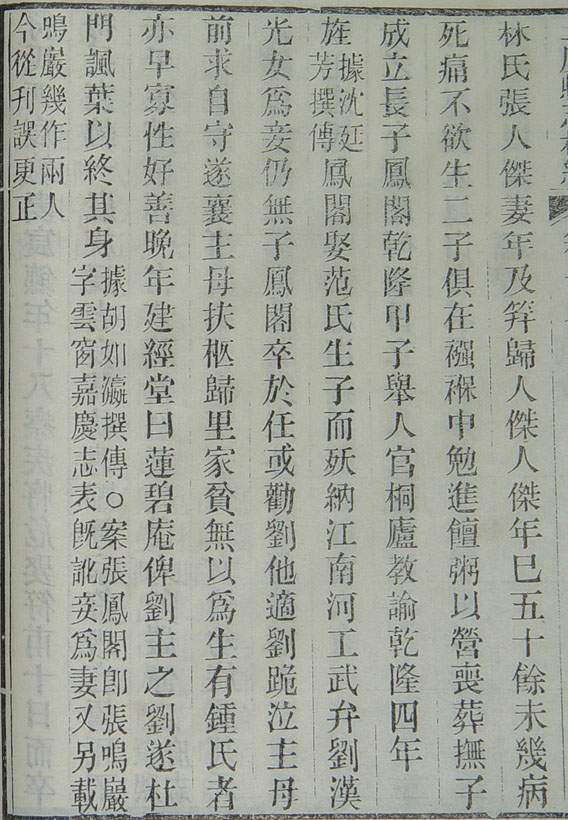 林氏張人傑妻年及笄歸人傑人傑年巳五十餘未幾病
死痛不欲生二子俱在襁褓中勉進饘粥以營喪葬撫子
成立長子鳳閣乾隆甲子舉人官桐廬教諭乾隆四年
旌據沈廷芳撰傳鳳閣娶范氏生子而殀納江南河工武弁劉漢
光女爲妾仍無子鳳閣卒於任或勸劉他適劉跪泣主母
前求自守遂襄主母扶柩歸里家貧無以爲生有鍾氏者
亦早寡性好善晚年建經堂曰蓮碧庵俾劉主之劉遂杜
門諷葉以終其身據胡如瀛撰傳○案張鳳閣卽張鳴巖
字雲窗嘉慶志表旣訛妾爲妻又另載
鳴巖幾作兩人
今從刊誤更正